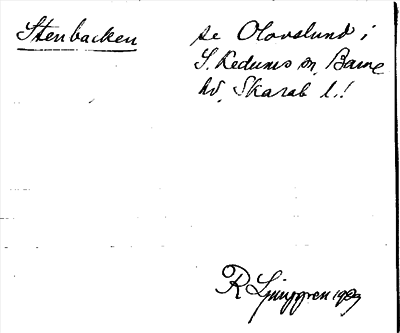 Stenbacken
se Olovslund i
S. Kedums sn, Barne
hd, Skarab l.!
R Ljunggren 1929